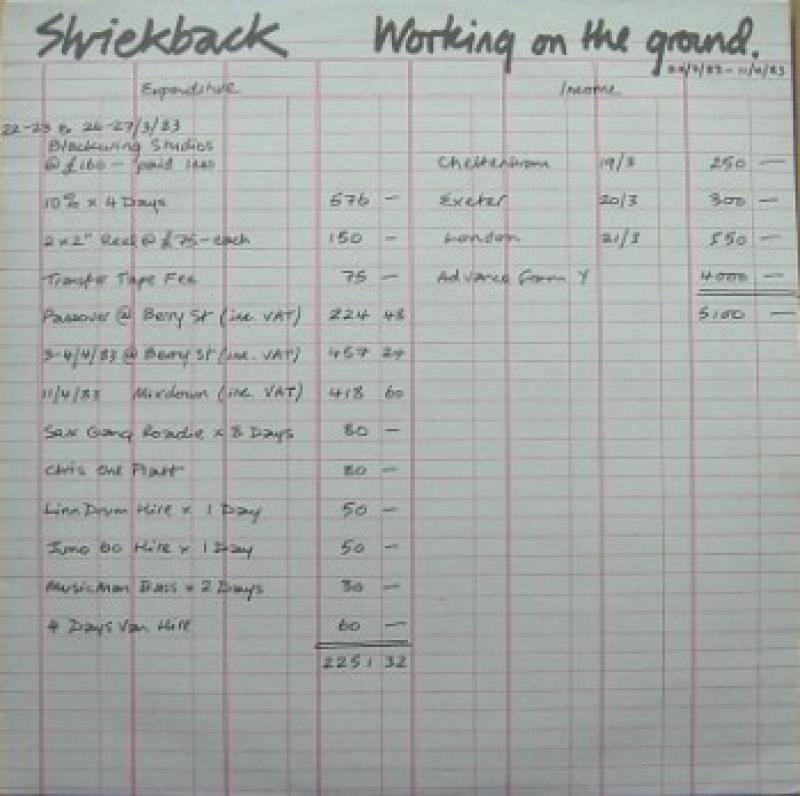 Shriekback Working on the ground.
Expenditure Income
22-23 & 26-27/3/83
Blackwing Studios
@ £160 - paid Cheltenham 19/3 250 —
10% x 4 Days 576 — Exeter 20/3 300 —
2 x 2" Reel @ £75 - each 150 — London 21/3 550 —
Transfer Tape Fee 75 — Advance from Y 4000 —
Passover @ Berry St (inc. VAT) 224 48 5100 —
3-4/4/83 @ Berry St (inc. VAT) 457 24
11/4/83 Mixdown (inc. VAT) 418 60
Sax Gang Roadie x 8 Days 80 —
Chris 80 —
Linn Drum Hire x 1 Day 50 —
Juno 60 Hire x 1 Day 50 —
MusicMan Bass x 2 Days 30 —
4 Days Van Hire 60 —
2251 32